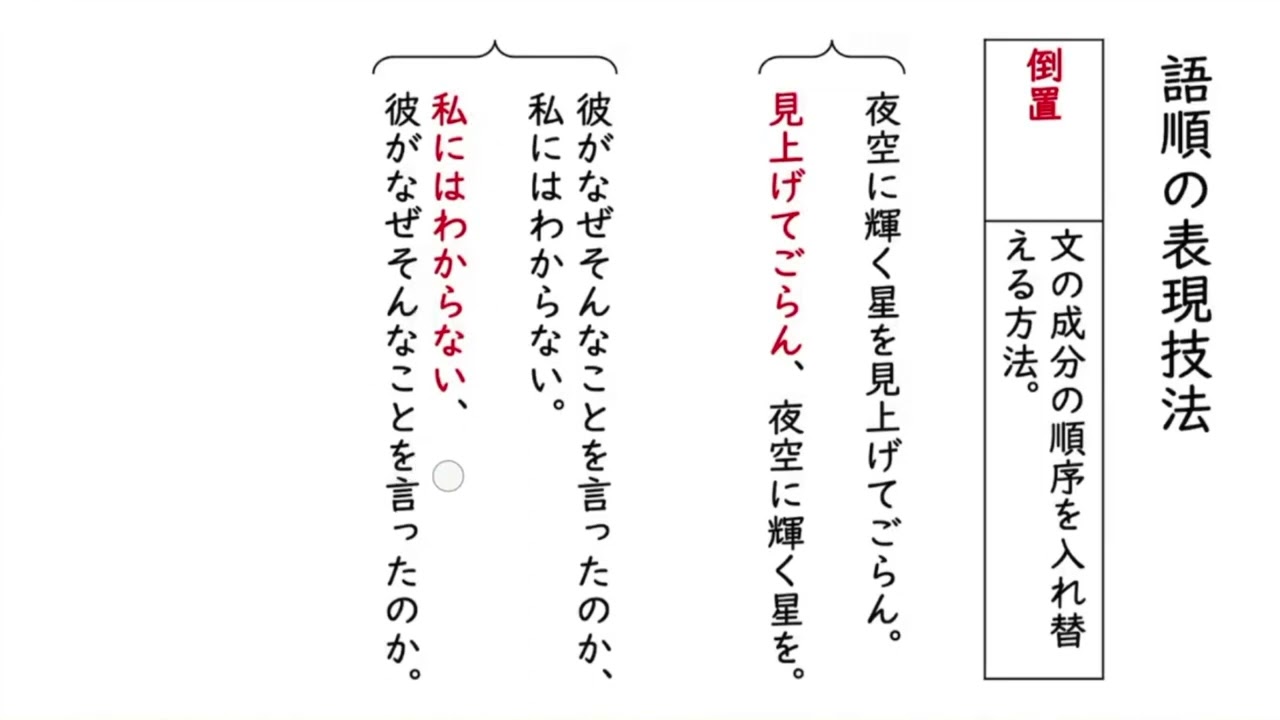 語順の表現技法
倒置
文の成分の順序を入れ替
える方法。
夜空に輝く星を見上げてごらん。
見上げてごらん、夜空に輝く星を。
彼がなぜそんなことを言ったのか、
私にはわからない。
私にはわからない、
彼がなぜそんなことを言ったのか。